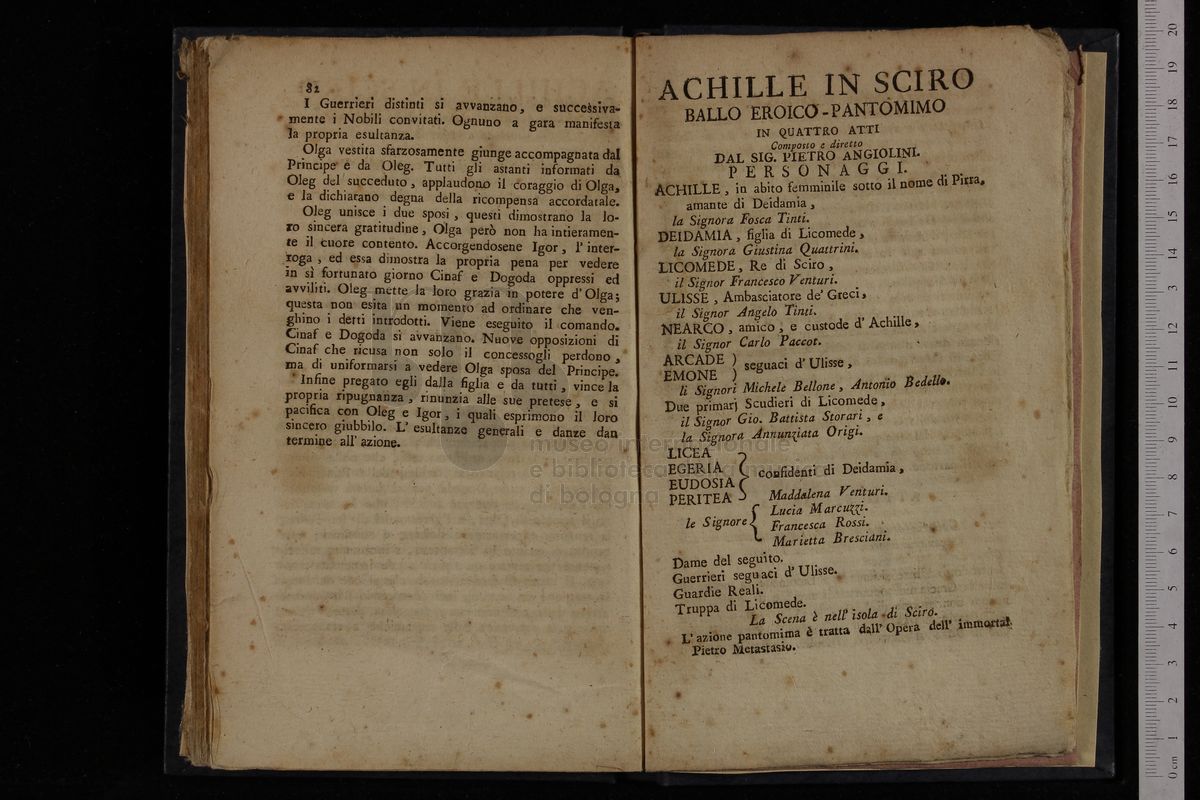 82
I Guerrieri distinti si avvanzano, e successiva-
mente i Nobili convitati. Ognuno a gara manifesta
la propria esultanza.
Olga vestita sfarzosamente giunge accompagnata dal
Principe e da Oleg. Tutti gli astanti informati da
Oleg del succeduto, applaudono il coraggio di Olga,
e la dichiarano degna della ricompensa accordatale.
Oleg unisce i due sposi, questi dimostrano la lo-
ro sincera gratitudine, Olga però non ha intieramen-
te il cuore contento. Accorgendosene Igor, l' inter-
roga, ed essa dimostra la propria pena per vedere
in sì fortunato giorno Cinaf e Dogoda oppressi ed
avviliti. Oleg mette la loro grazia in potere d' Olga;
questa non esita un momento ad ordinare che ven-
ghino i detti introdotti. Viene eseguito il comando.
Cinaf e Dogoda si avvanzano. Nuove opposizioni di
Cinaf che ricusa non solo il concessogli perdono,
ma di uniformarsi a vedere Olga sposa del Principe.
Infine pregato egli dalla figlia e da tutti, vince la
propria ripugnanza, rinunzia alle sue pretese, e si
pacifica con Oleg e Igor, i quali esprimono il loro
sincero giubbilo. L' esultanze generali e danze dan
termine all' azione.
museo internazionale
e biblioteca della musica
di bologna
ACHILLE IN SCIRO
BALLO EROICO-PANTOMIMO
IN QUATTRO ATTI
Composto e diretto
DAL SIG. PIETRO ANGIOLINI.
PERSONAGGI.
ACHILLE, in abito femminile sotto il nome di Pirra,
amante di Deidamia,
la Signora Fosca Tinti.
DEIDAMIA, figlia di Licomede,
la Signora Giustina Quattrini.
LICOMEDE, Re di Sciro,
il Signor Francesco Venturi.
ULISSE, Ambasciatore de' Greci,
il Signor Angelo Tinti.
NEARCO, amico, e custode d' Achille,
il Signor Carlo Paccot.
ARCADE )
EMONE ) seguaci d' Ulisse,
li Signori Michele Bellone, Antonio Bedello.
Due primarj Scudieri di Licomede,
il Signor Gio. Battista Storari, e
la Signora Annunziata Origi.
LICEA
EGERIA
EUDOSIA
PERITEA
confidenti di Deidamia,
le Signore
Maddalena Venturi.
Lucia Marcuzzi.
Francesca Rossi.
Marietta Bresciani.
Dame del seguito.
Guerrieri seguaci d' Ulisse.
Guardie Reali.
Truppa di Licomede.
La Scena è nell' isola di Sciro.
L' azione pantomima è tratta dall' Opera dell' immortal
Pietro Metastasio.
0 cm 1 2 3 4 5 6 7 8 9 10 11 12 13 14 15 16 17 18 19 20